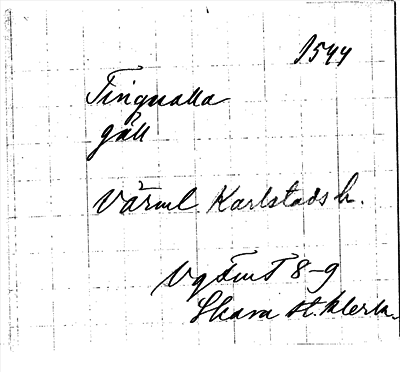 1544
Tingvalla
gäll
Värml Karlstads h.
Vg Fm T 8-9
Skara st. klerk.